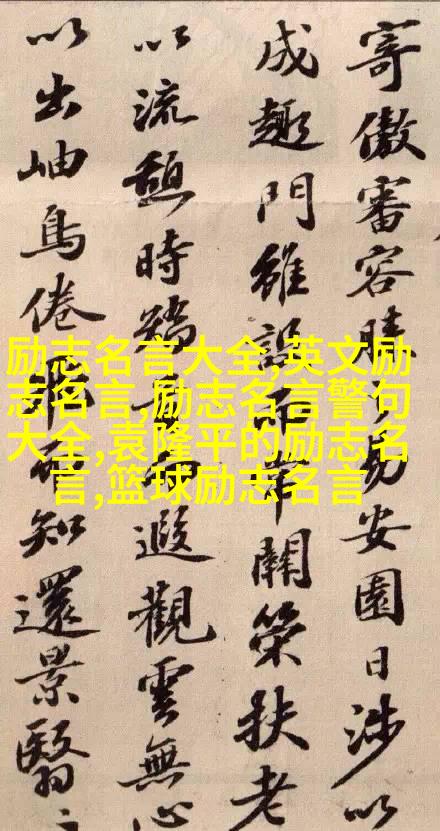 寄傲審容膝之易安園日涉以
成趣門雖設而常關策扶老
以流憩時矯首而遐觀雲無心
以出岫鳥倦飛而知還景翳〻
励志名言大全,英文励
志名言,励志名言警句
大全,袁隆平的励志名
言,篮球励志名言